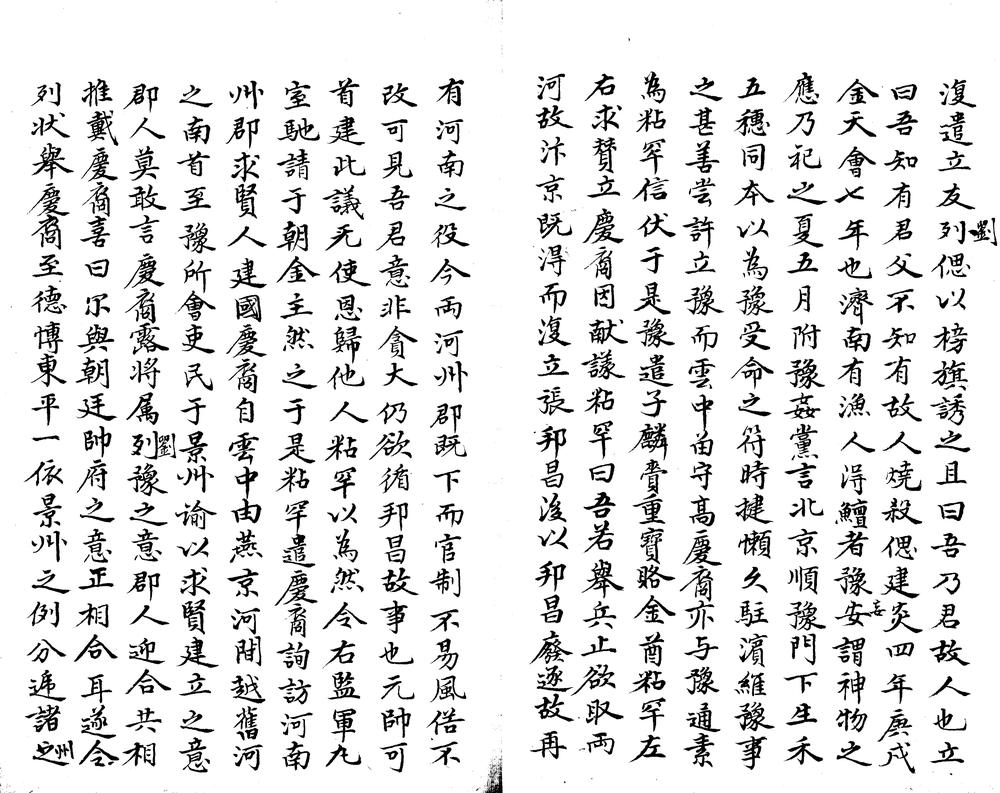 復遣立友列劉偲以榜旗誘之且曰吾乃君故人也立
曰吾知有君父不知有故人燒殺偲建炎四年庚戍
金天會七年也濟南有漁人淂鱣者豫妄喜謂神物之
應乃祀之夏五月附豫姦黨言北京順豫門下生禾
五穗同本以為豫受命之符時揵懶久駐濱維豫事
之甚善尝許立豫而雲中留守髙慶裔亦与豫通素
為粘罕信伏于是豫遣子麟賫重寶賂金酋粘罕左
右求賛立慶裔因献議粘罕曰吾若舉兵止欲取兩
河故汴京既淂而復立張邦昌後以邦昌廢逐故再
有河南之役今兩河州郡既下而官制不易風俗不
改可見吾君意非貪大仍欲循邦昌故事也元帥可
首建此議无使恩歸他人粘罕以為然令右監軍兀
室馳請于朝金主然之于是粘罕遣慶裔詢訪河南
州郡求賢人建國慶裔自雲中由燕京河間越舊河
之南首至豫所會吏民于景州谕以求賢建立之意
郡人莫敢言慶裔露将属列劉豫之意郡人迎合共相
推戴慶裔喜曰尓與朝廷帥府之意正相合耳遂令
列状舉慶裔至德博東平一依景州之例分遞諸州之